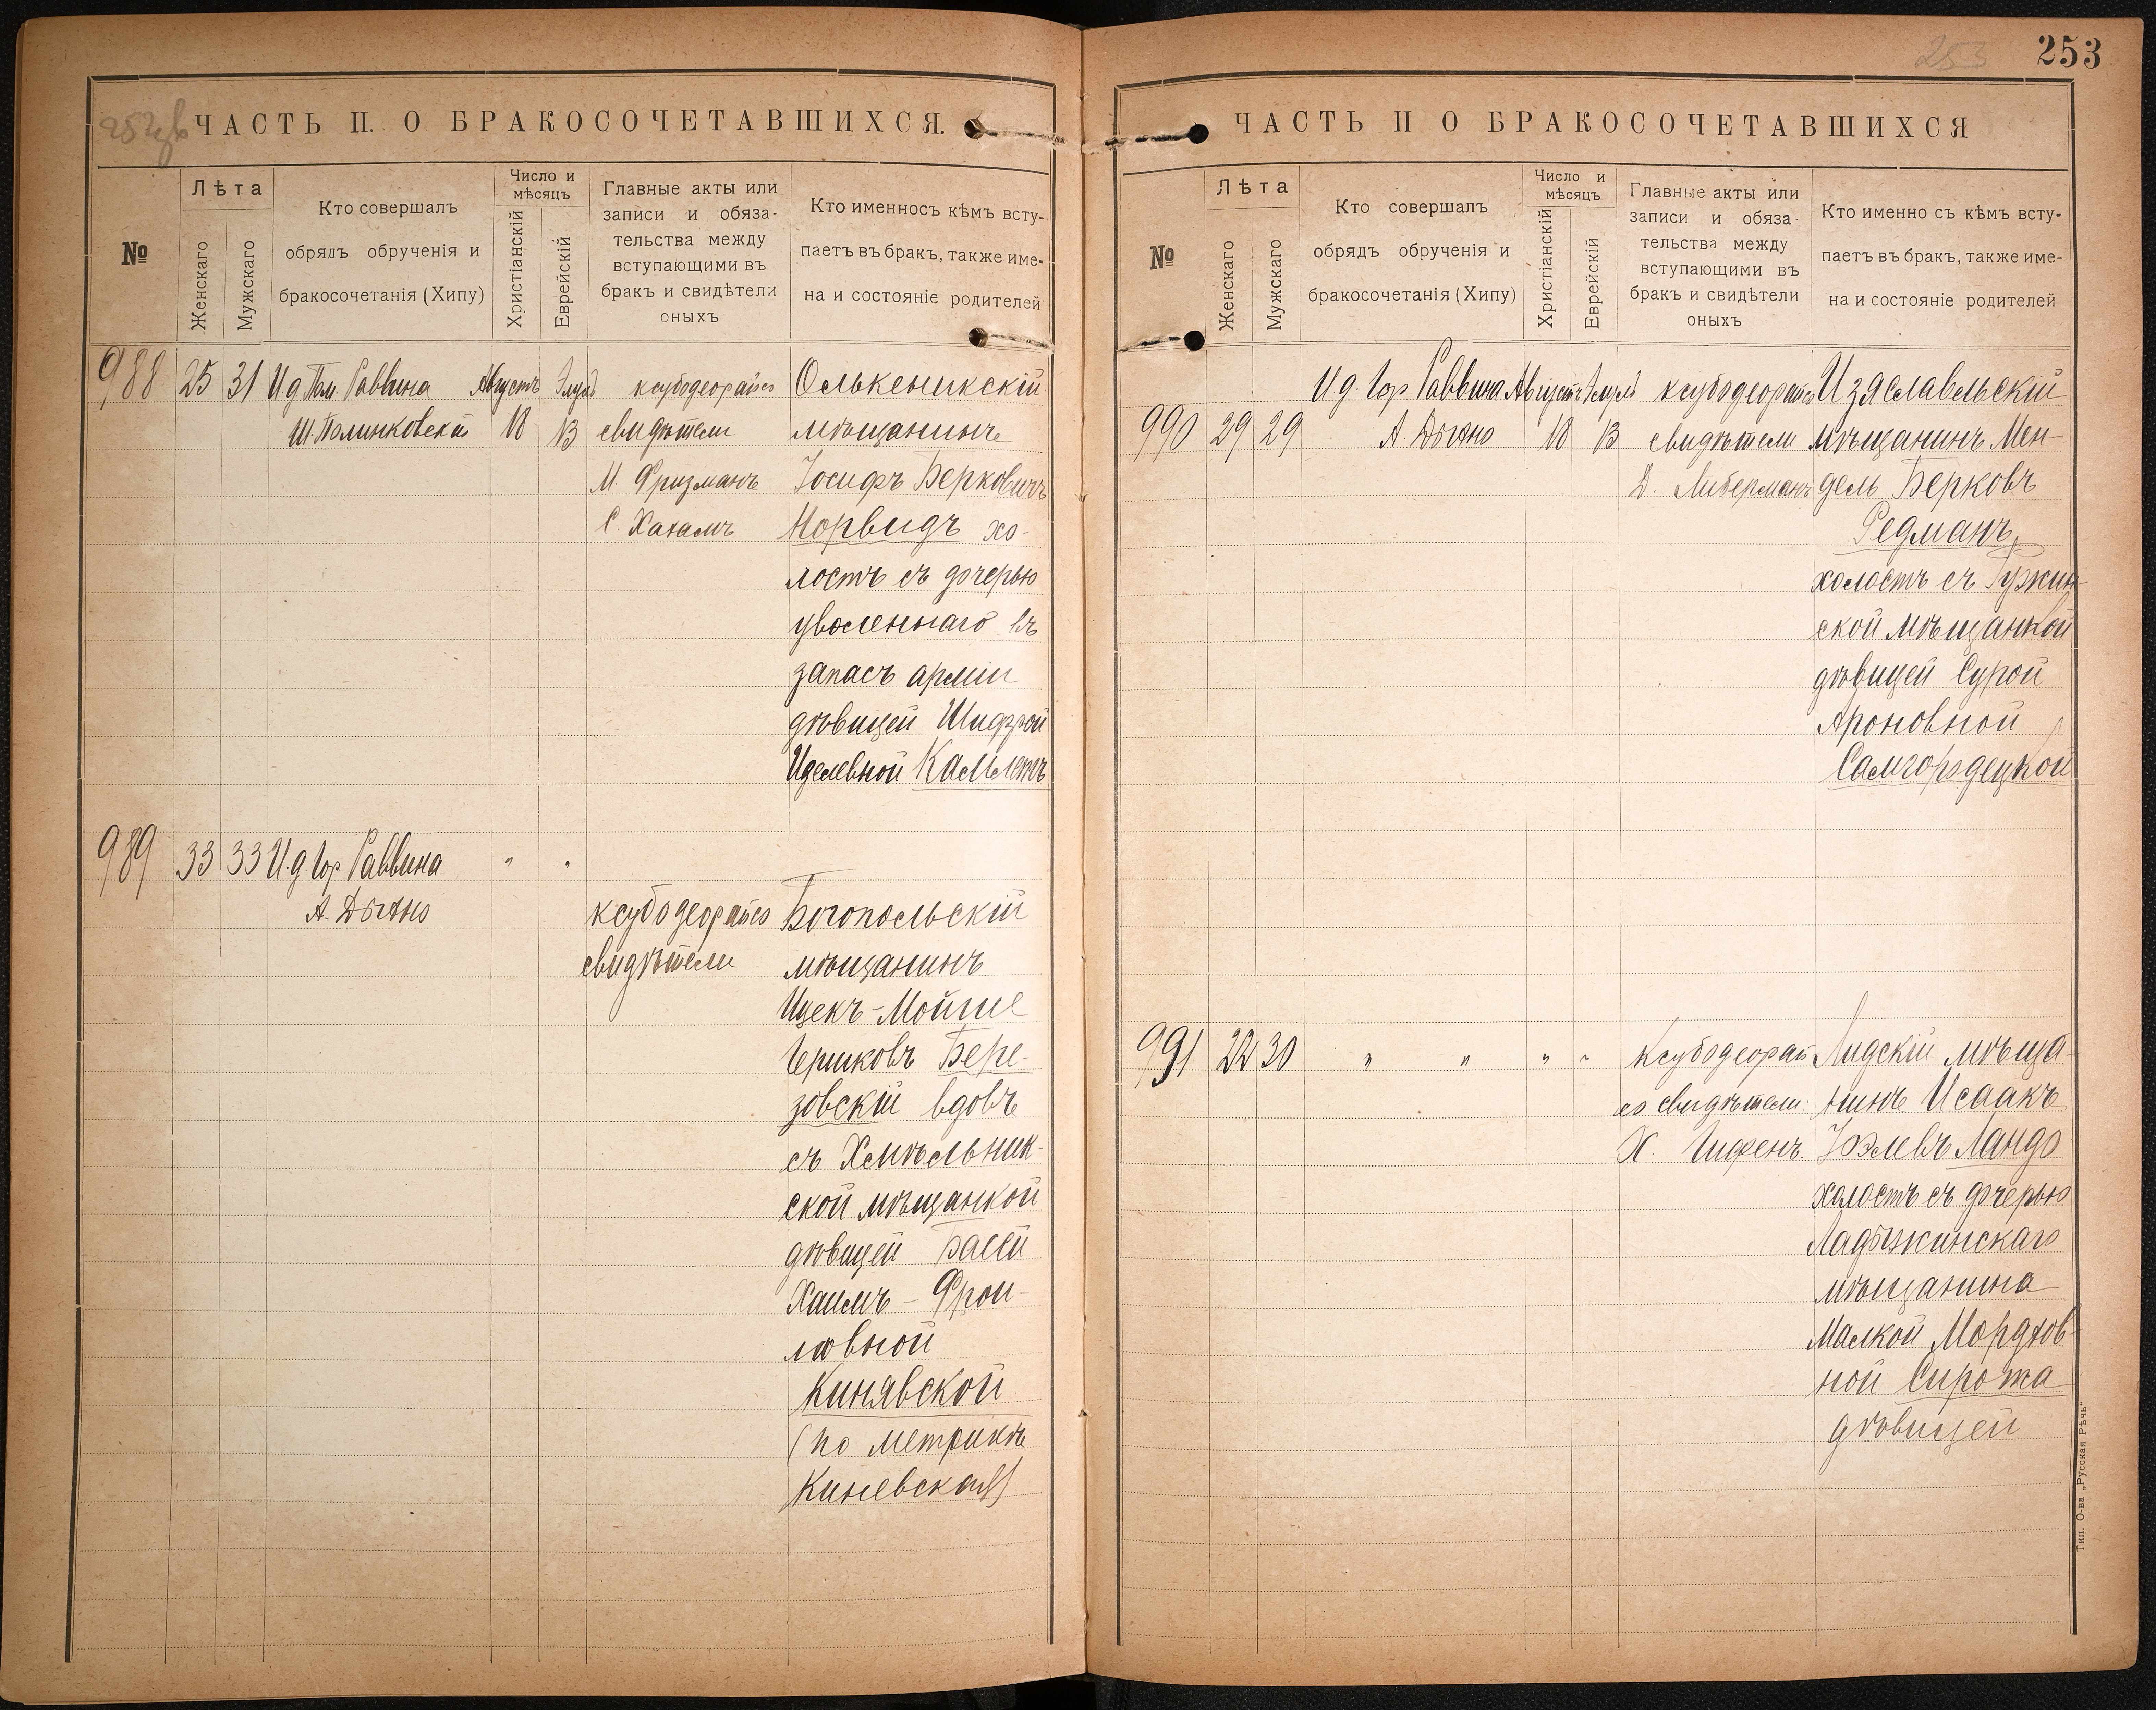 253
253
ЧАСТЬ II. О БРАКОСОЧЕТАВШИХСЯ.
№
Лѣта
Женскаго
Мужскаго
Кто совершалъ
обрядъ обрученія и
бракосочетанія (Хипу)
Число и
мѣсяцъ
Христіанскій
Еврейскій
Главные акты или
записи и обяза-
тельства между
вступающими въ
бракъ и свидѣтели
оныхъ
Кто именносъ кѣмъ всту-
паетъ въ бракъ, также име-
на и состояніе родителей
988 25 31 И д Пом. Раввина Августъ Элулъ ксубодеорайсо Олькеникскій
Ш. Полинковскій 18 13 свидѣтели мѣщанинъ
М. Фризманъ Іосифъ Берковичъ
С. Хахамъ Норвидъ хо-
лостъ съ дочерью
уволеннаго въ
запасъ арміи
дѣвицей Шифрой
Иделевной
989 33 33 И.д Гор Раввина " "
А. Дыхно ксубодеорайсо Богопольскій
свидѣтели мѣщанинъ
Ицекъ-Мойше
Гершковъ Бере-
зовскій вдовъ
съ Хмѣльник-
ской мѣщанкой
дѣвицей Басей
Хаимъ-Фрои-
мовной
Кинявской
(по метрикѣ
Киневская)
ЧАСТЬ II О БРАКОСОЧЕТАВШИХСЯ
№
Лѣта
Женскаго
Мужскаго
Кто совершалъ
обрядъ обрученія и
бракосочетанія (Хипу)
Число и
мѣсяцъ
Христіанскій
Еврейскій
Главные акты или
записи и обяза-
тельства между
вступающими въ
бракъ и свидѣтели
оныхъ
Кто именно съ кѣмъ всту-
паетъ въ бракъ, также име-
на и состояніе родителей
И д. Гор Раввина Августъ Элулъ ксубодеорайсо Изяславльскій
990 29 29 А. Дыхно 18 13 свидѣтели мѣщанинъ Мен-
Д. Либерманъ дель Берковъ
Редманъ,
холостъ съ
ской мѣщанкой
дѣвицей Сурой
Ароновной
Самгородецкой
991 22 30 " " " " Ксубодеорай Лидскій мѣща-
со свидѣтели нинъ Исаакъ
Х. Гифенъ Іоэлевъ Ландо
холостъ съ дочерью
Ладыжинскаго
мѣщанина
Малкой Мордков-
ной Сирота
дѣвицей
Тип. О-ва „Русская Рѣчь"